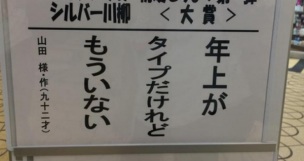 シルバー川柳
<大賞>
年上が
タイプだけれど
もういない
山田 様・作(九十二才)